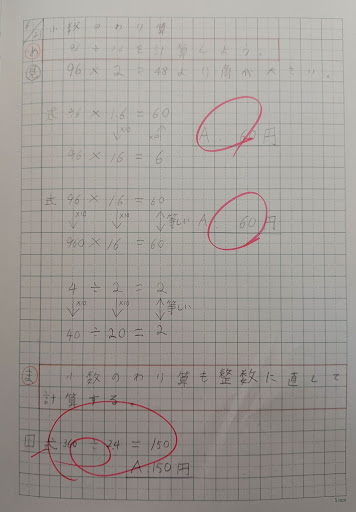 小数のわり算
め 96÷1.6を計算しよう。
見 96 × 2 = 48より 大きい。
式 96 × 1.6 = 60
↓×10 ×10↑
A. 60円
96 × 16 = 6
式 96 × 1.6 = 60
↓×10 ↓×10 ↕等しい A. 60円
960 × 16 = 60
4 ÷ 2 = 2
↓×10 ↓×10 ↕等しい
40 ÷ 20 = 2
ま 小数のわり算も整数に直して
計算する。
式 360 ÷ 2.4 = 150
A. 150円